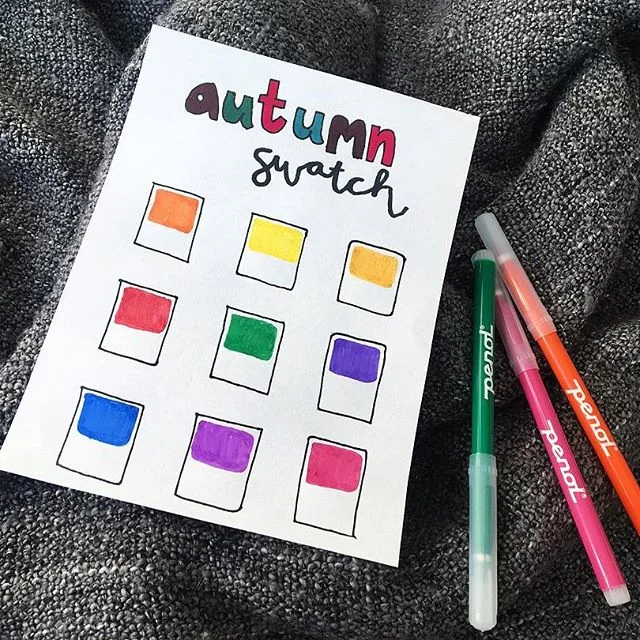 autumn
swatch
penol
penol
penol